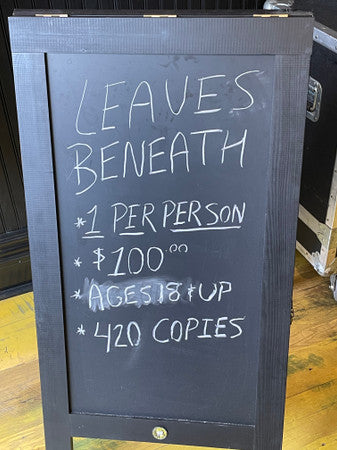 LEAVES
BENEATH
* 1 PER PERSON
* $100.00
* AGES 18 + UP
* 420 COPIES